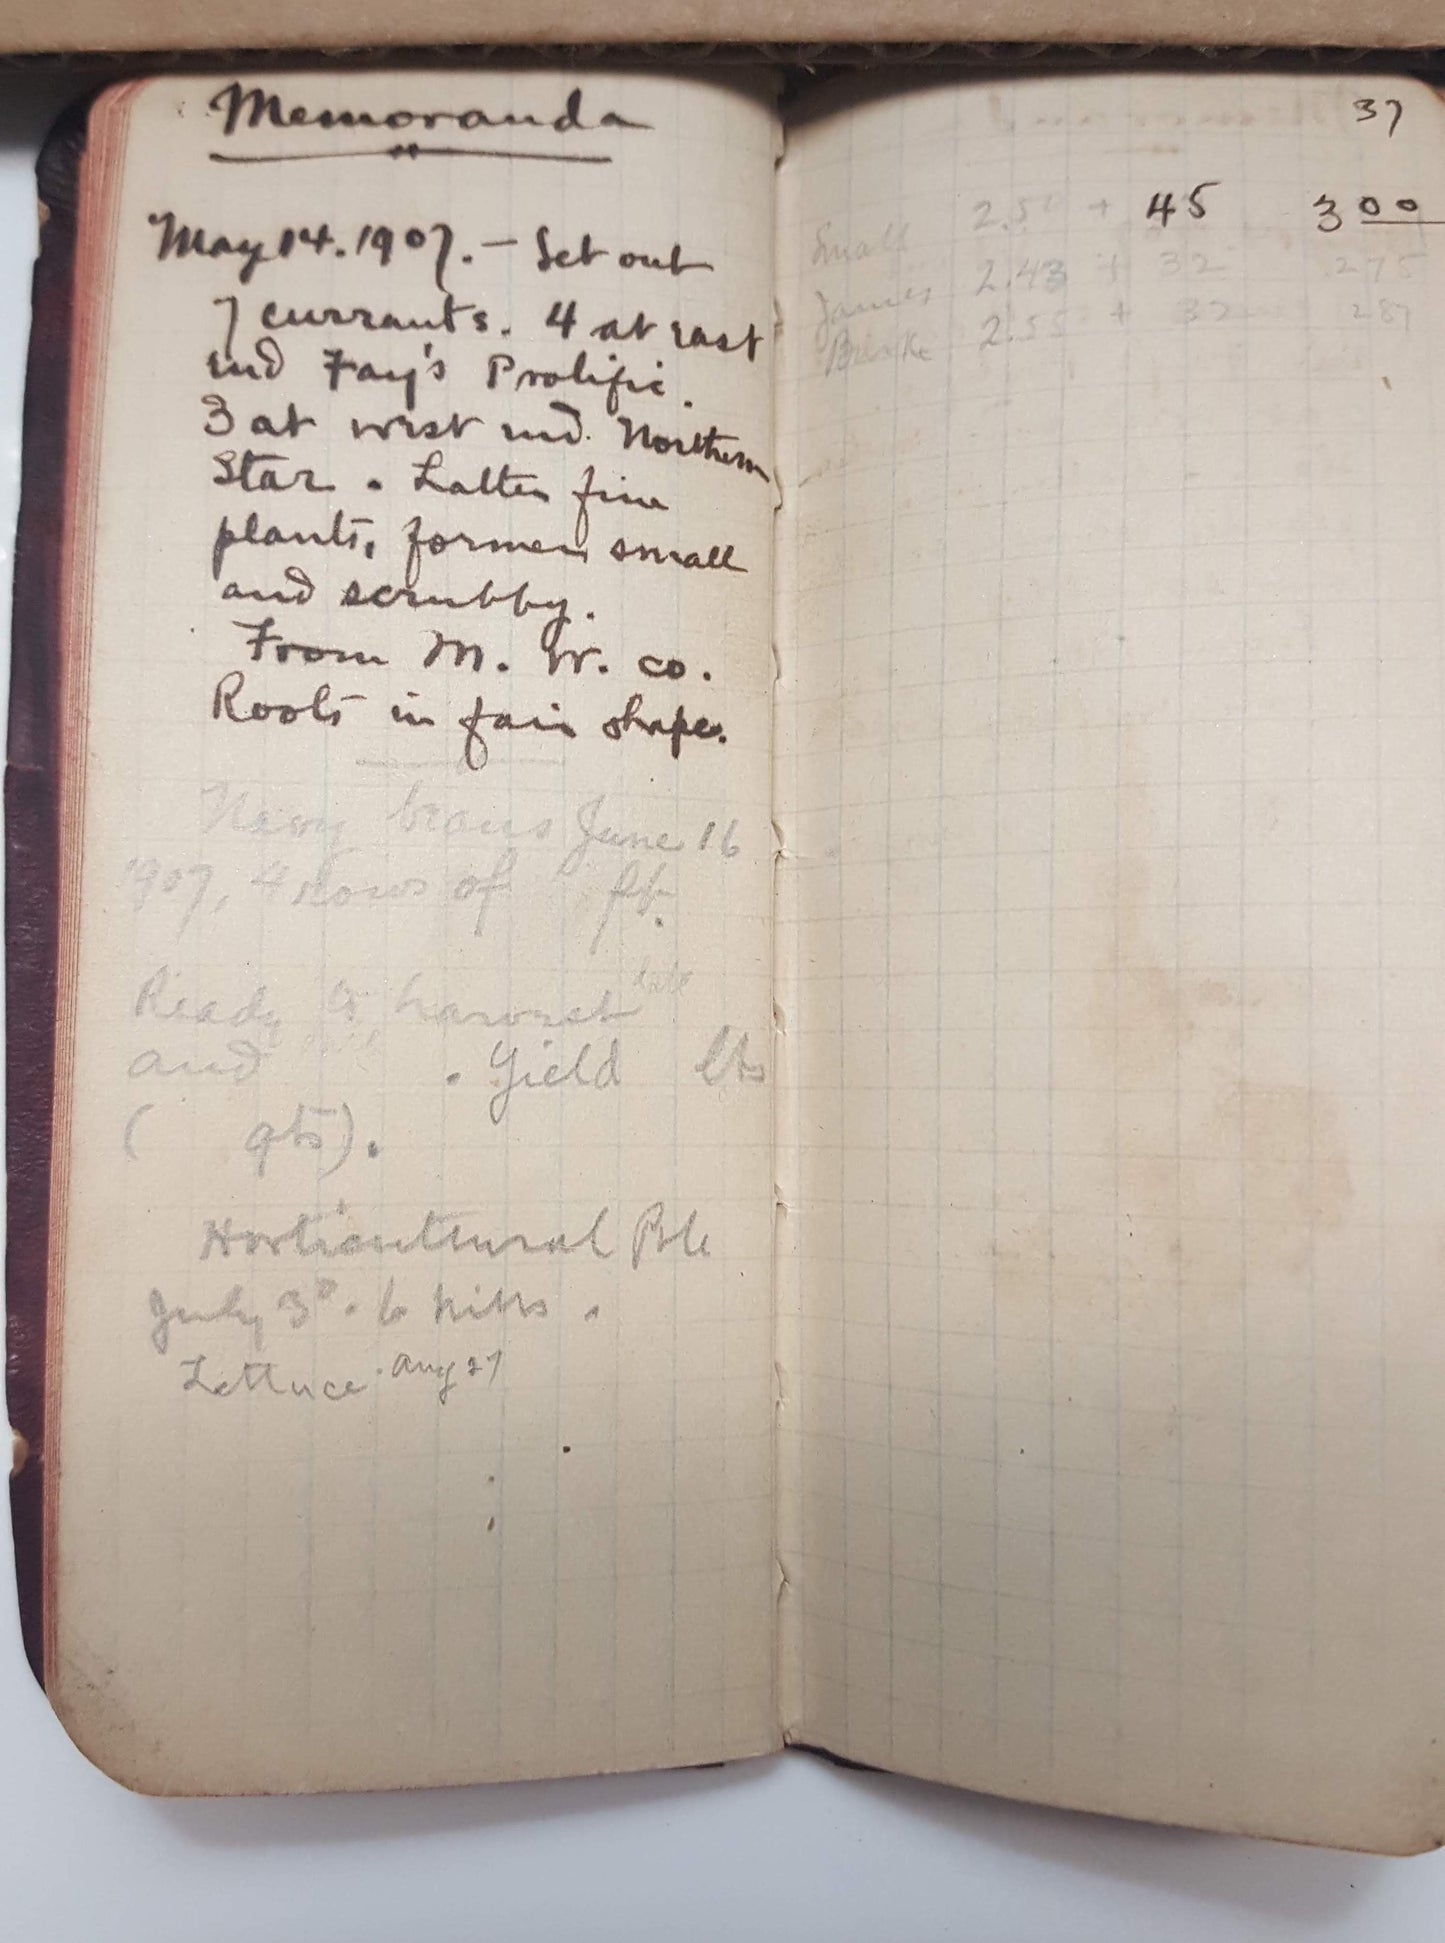 Memoranda
May 14. 1907. - Set out
7 currants. 4 at east
end Fay's Prolific.
3 at west end. Northern
Star. Latter fine
plants, former small
and scrubby.
From M. W. co.
Roots in fair shape.
Navy beans June 16
1907, 4 rows of ft.
Ready to harvest late
and . Yield lbs
( qts).
Horticultural Pole
July 3d. 6 hills.
Lettuce. Aug 27
37
Small 2.5 + 45 300
James 2.43 + 32 275
Burke 2.55 + 32 287